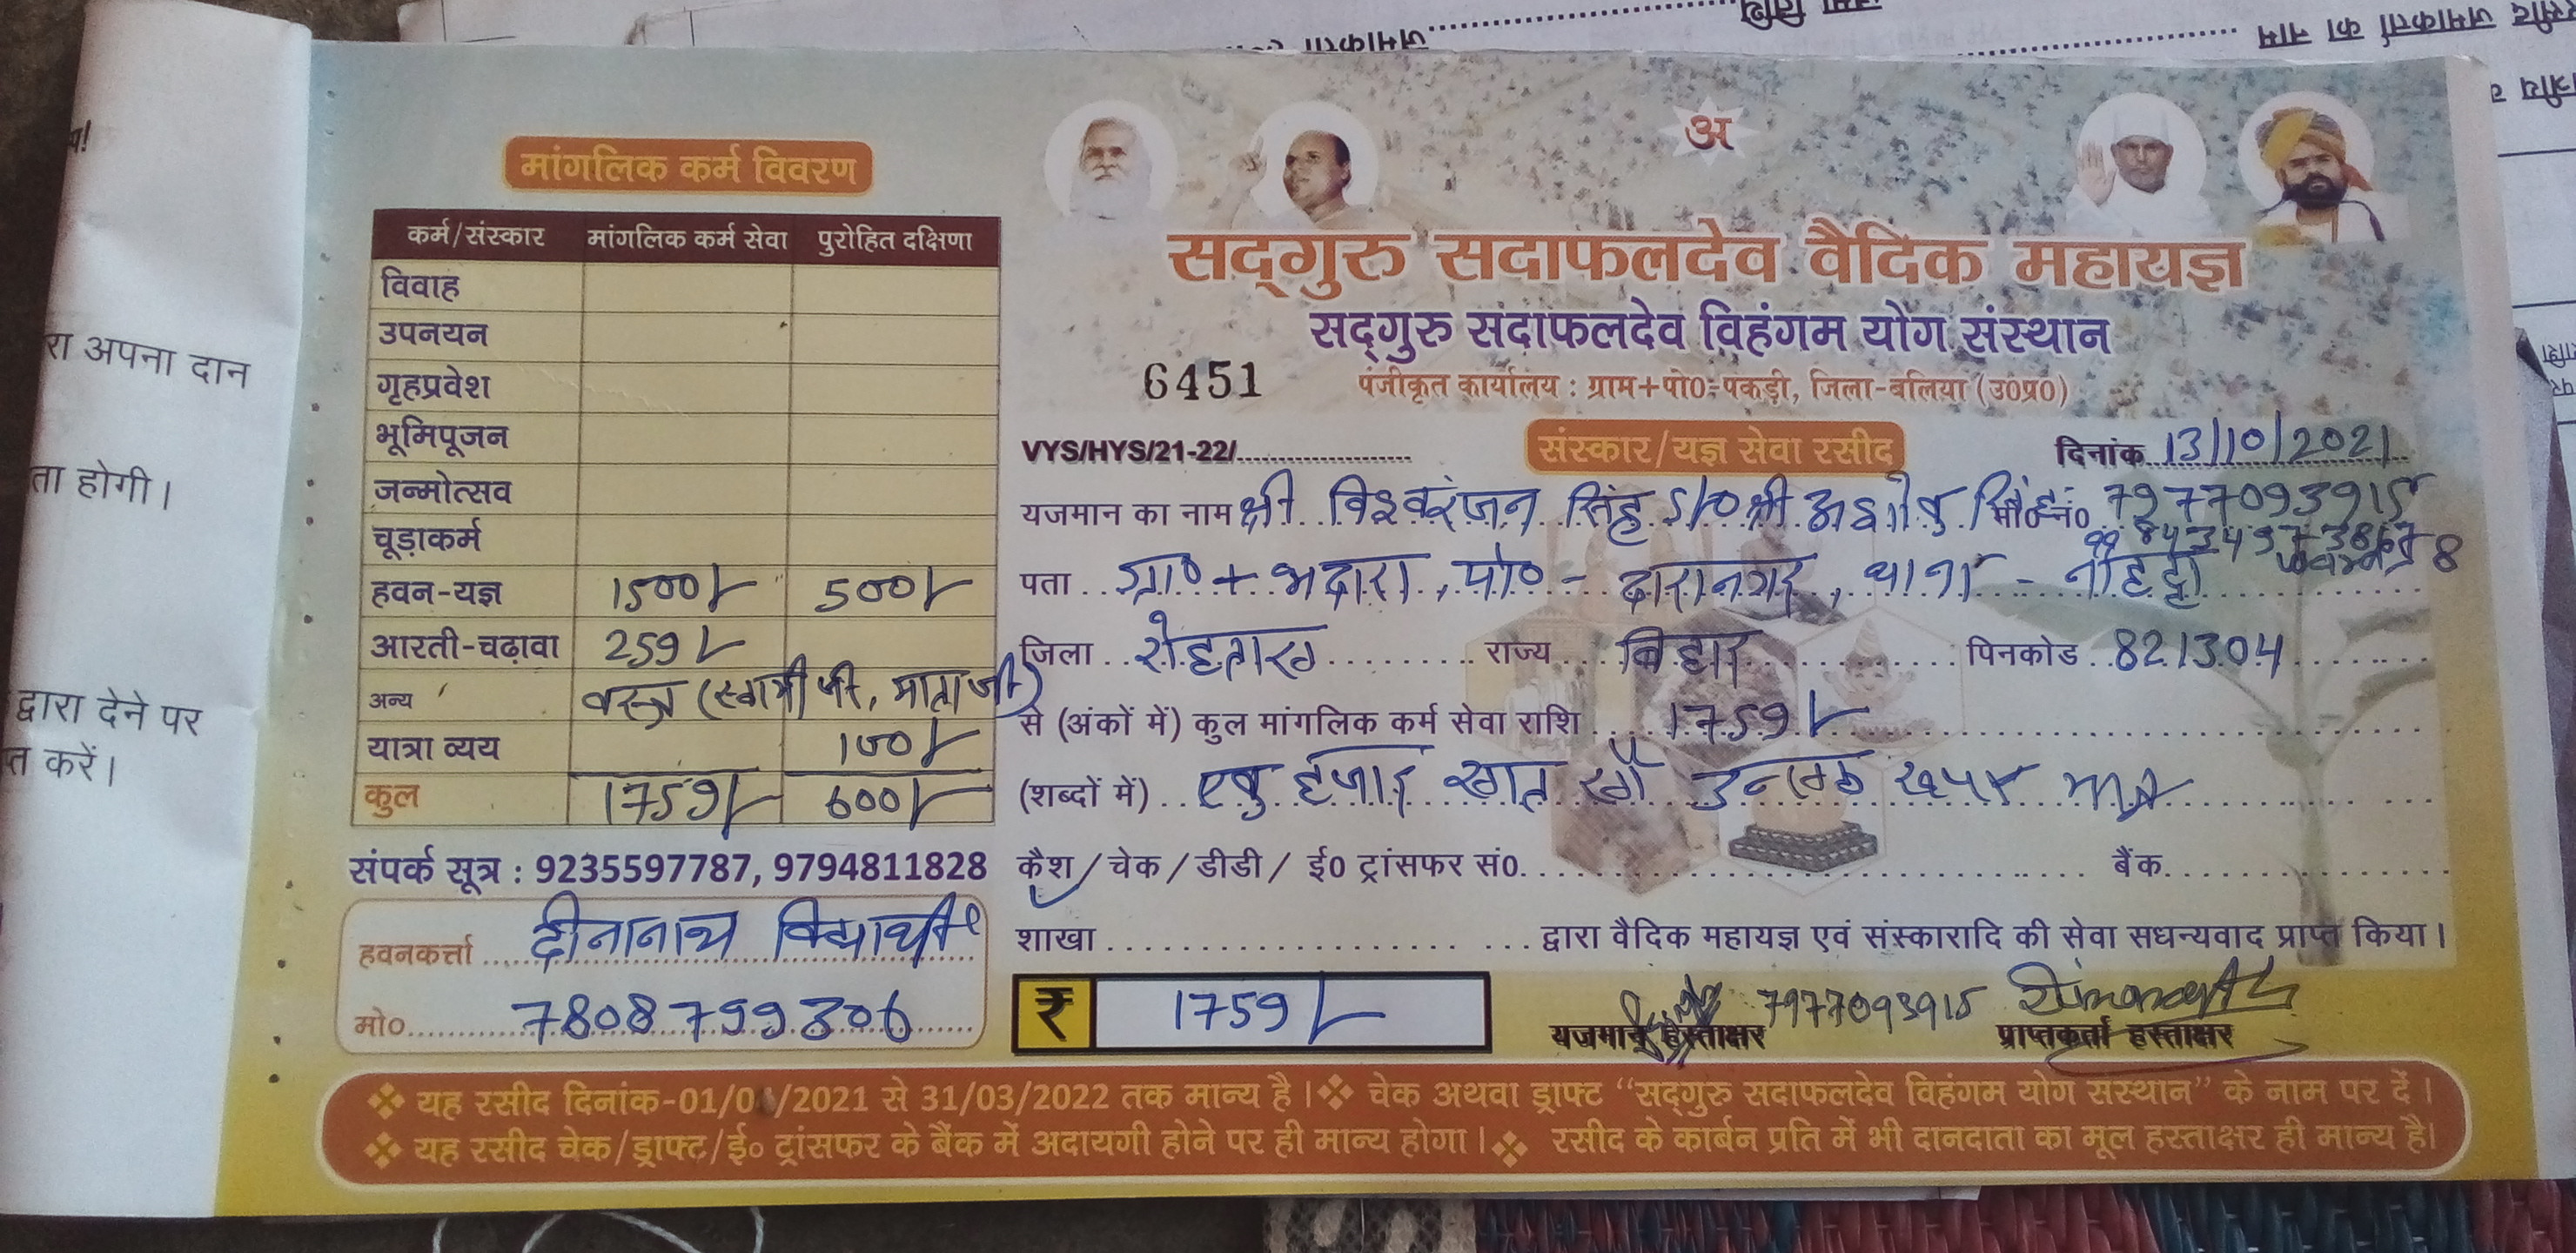 मांगलिक कर्म विवरण
कर्म/संस्कार मांगलिक कर्म सेवा पुरोहित दक्षिणा
विवाह
उपनयन
गृहप्रवेश
भूमिपूजन
जन्मोत्सव
चूड़ाकर्म
हवन-यज्ञ 1500/- 500/-
आरती-चढ़ावा 259/-
अन्य वस्त्र (स्वामी जी, माता जी)
यात्रा व्यय 100/-
कुल 1759/- 600/-
संपर्क सूत्र : 9235597787, 9794811828
हवनकर्त्ता दीनानाथ विद्यार्थी
मो० 7808799306
अ
सद्गुरु सदाफलदेव वैदिक महायज्ञ
सद्गुरु सदाफलदेव विहंगम योग संस्थान
6451 पंजीकृत कार्यालय : ग्राम+पो0-पकड़ी, जिला-बलिया (उ0प्र0)
VYS/HYS/21-22/ संस्कार/यज्ञ सेवा रसीद दिनांक 13/10/2021
यजमान का नाम श्री विश्वरंजन सिंह S/o श्री अशोक सिंह मो० नं० 7977093915
पता ग्रा० + भदारा, पो० - दारानगर, थाना - नौहट्टा
जिला रोहतास राज्य बिहार पिनकोड 821304
से (अंकों में) कुल मांगलिक कर्म सेवा राशि 1759/-
(शब्दों में) एक हजार सात सौ उनसठ रुपये मात्र
कैश / चेक / डीडी / ई0 ट्रांसफर सं0. बैंक
शाखा द्वारा वैदिक महायज्ञ एवं संस्कारादि की सेवा सधन्यवाद प्राप्त किया।
₹ 1759/- 7977093915
यजमान हस्ताक्षर प्राप्तकर्ता हस्ताक्षर
❖ यह रसीद दिनांक-01/0 /2021 से 31/03/2022 तक मान्य है। ❖ चेक अथवा ड्राफ्ट “सद्गुरु सदाफलदेव विहंगम योग संस्थान” के नाम पर दें।
❖ यह रसीद चेक/ड्राफ्ट/ई० ट्रांसफर के बैंक में अदायगी होने पर ही मान्य होगा। ❖ रसीद के कार्बन प्रति में भी दानदाता का मूल हस्ताक्षर ही मान्य है।
रा अपना दान
ता होगी।
द्वारा देने पर
त करें।
जमाकर्ता का नाम
तिथि